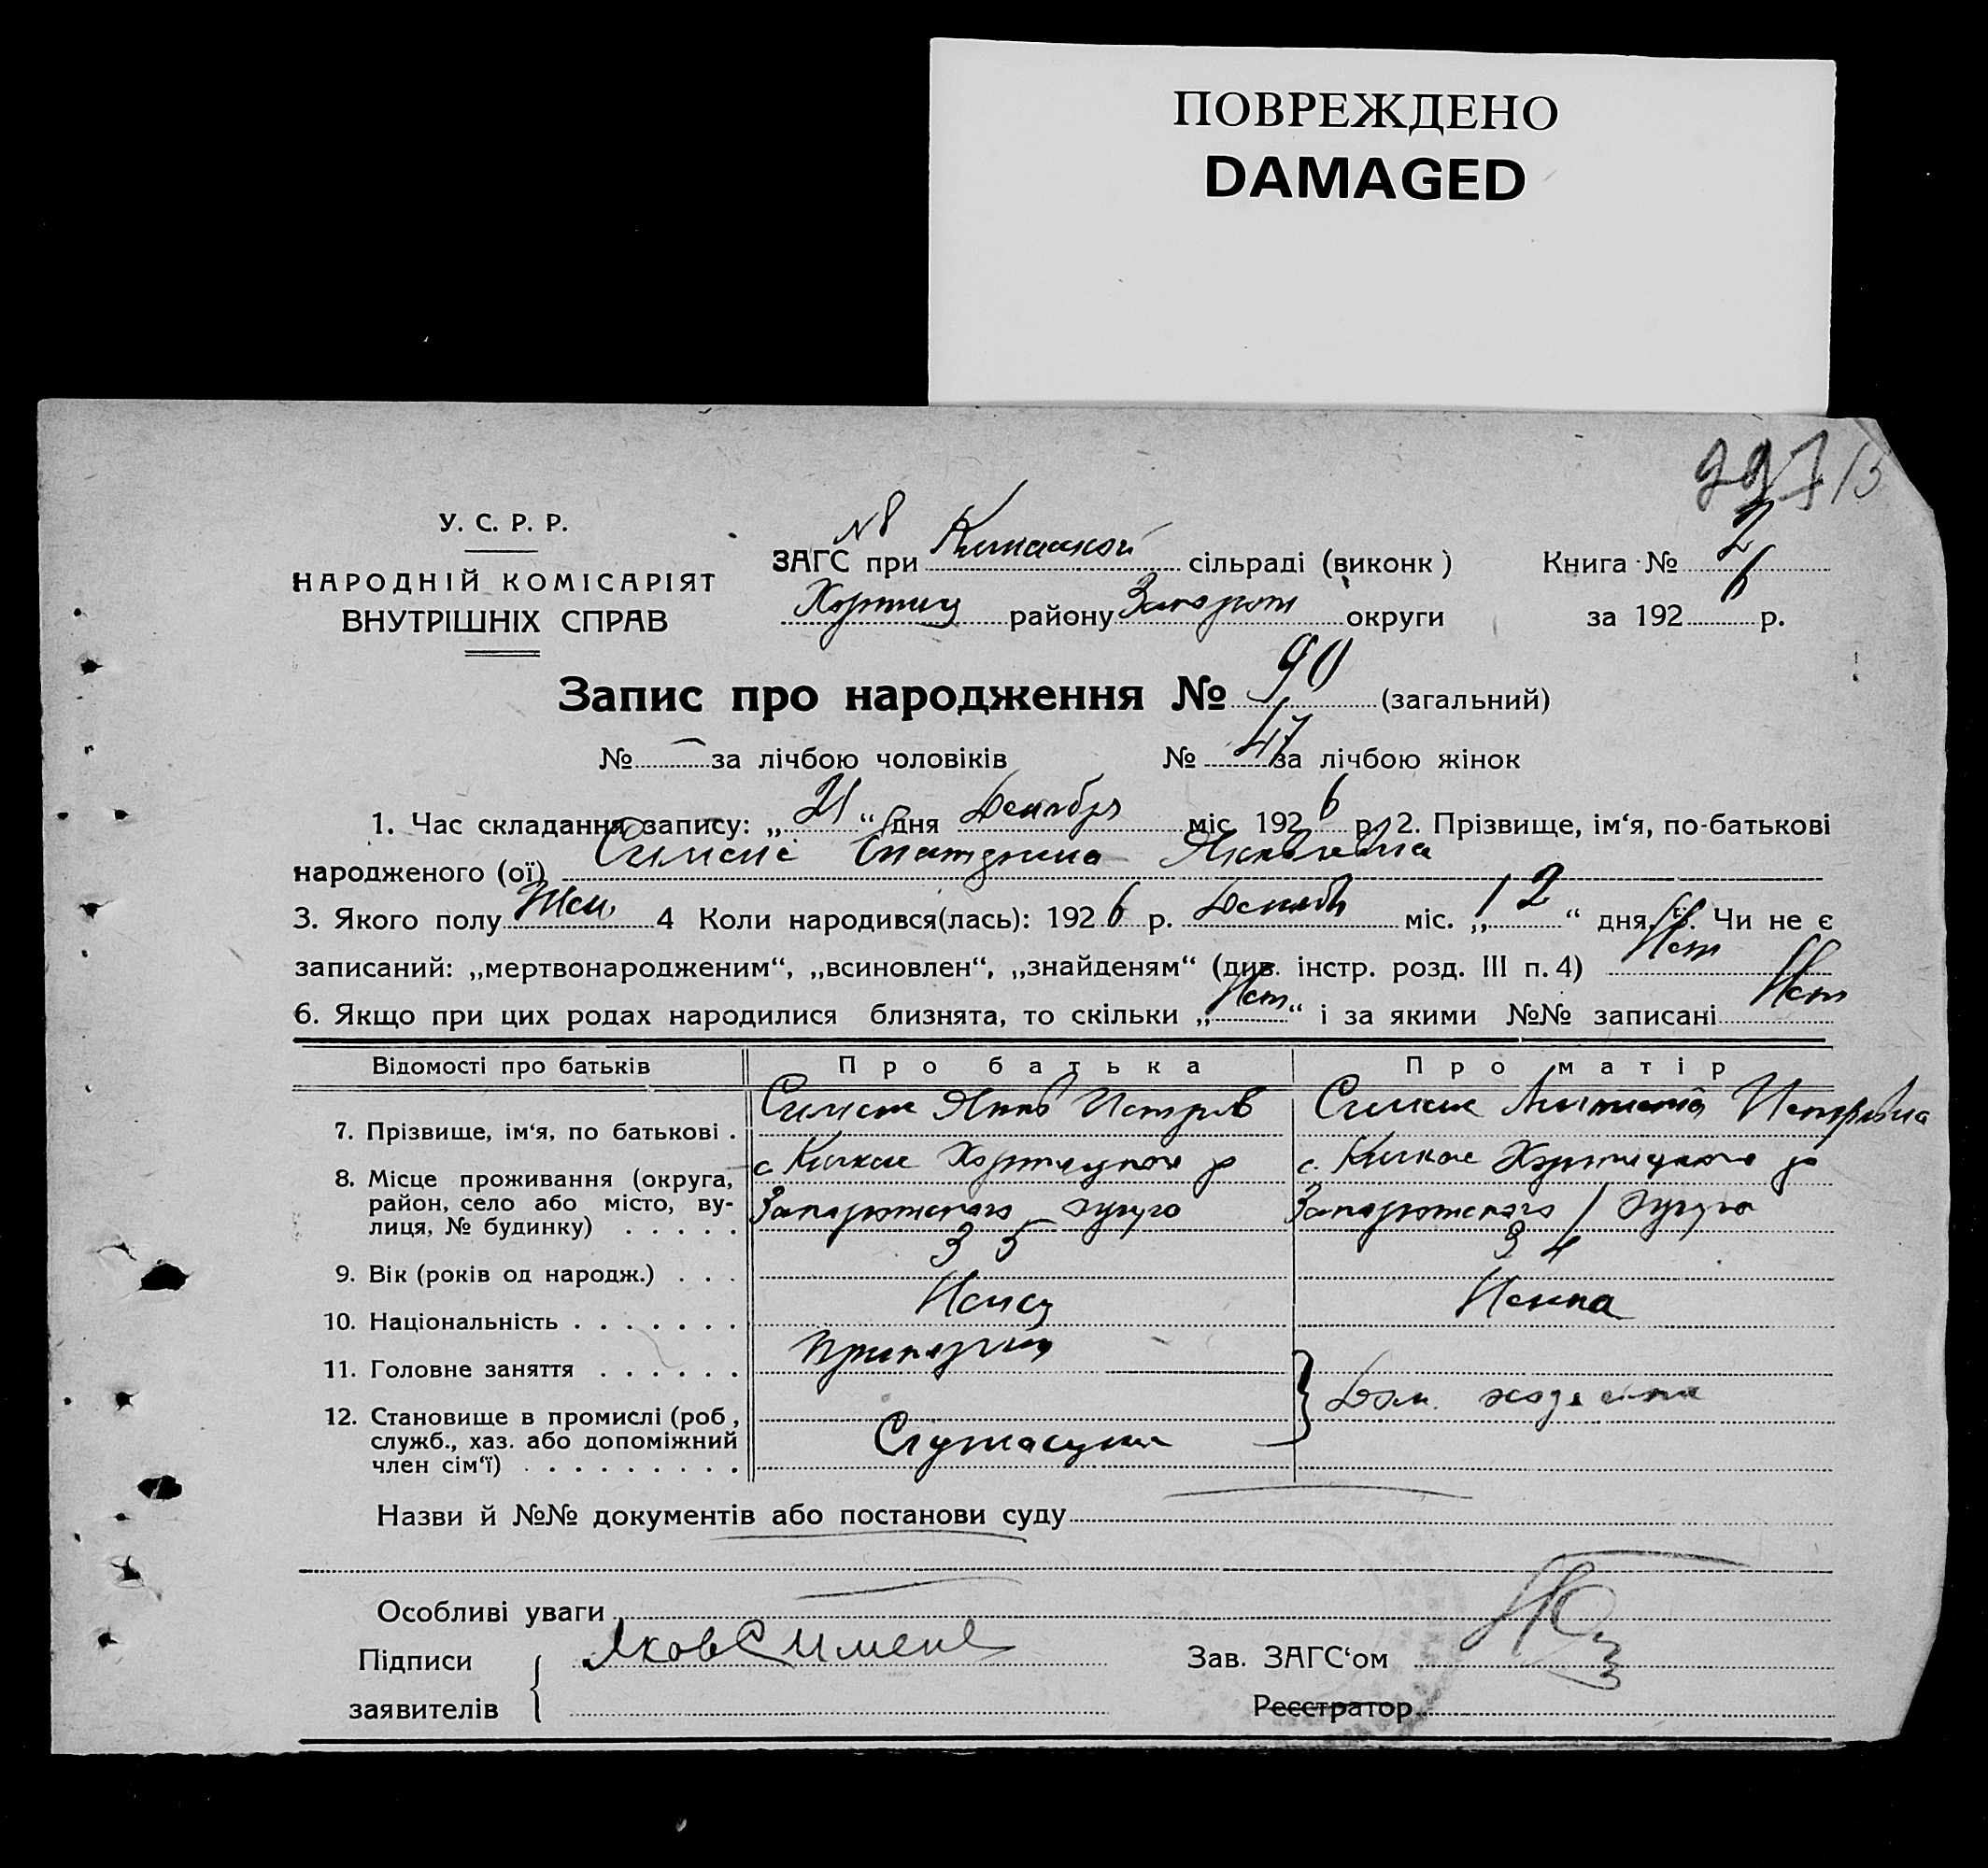 ПОВРЕЖДЕНО
DAMAGED
У. С. Р. Р.
НАРОДНІЙ КОМІСАРІЯТ
ВНУТРІШНІХ СПРАВ
№ 8
ЗАГС при Кичкаской сільраді (виконк) Книга № 2
Хортиц району Запорож округи за 1926 р.
Запис про народження № 90 (загальний)
№ — за лічбою чоловіків № 47 за лічбою жінок
1. Час складання запису: „21“ дня Декабря міс. 1926 р. 2. Прізвище, ім‘я, по-батькові
народженого (ої) Сименс Екатерина Яковлевна
3. Якого полу Жен. 4 Коли народився(лась): 1926 р. Декабр міс. „12“ дня. 5. Чи не є
записаний: „мертвонародженим“, „всиновлен“, „знайденям“ (див. інстр. розд. III п. 4) Нет
6. Якщо при цих родах народилися близнята, то скільки „Нет“ і за якими №№ записані Нет
Відомості про батьків Про батька Про матір
7. Прізвище, ім‘я, по батькові . Сименс Яков Петров Сименс Петровна
8. Місце проживання (округа, район, село або місто, вулиця, № будинку) . . . . . с Кичкас Хортицкого р Запорожского округа с. Кичкас Хортицкого р Запорожского округа
9. Вік (років од народж.) . . . 35 34
10. Національність . . . . . . . Немец Немка
11. Головне заняття . . . . . .
12. Становище в промислі (роб., служб., хаз. або допоміжний член сім‘ї) . . . . . . . . . Служащий Дом. хозяйка
Назви й №№ документів або постанови суду
Особливі уваги
Підписи заявителів Яков Сименс Зав. ЗАГС‘ом
Реєстратор